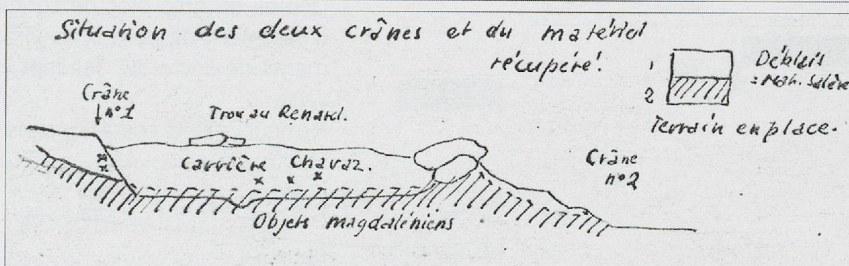 Situation des deux crânes et du matériel
récupéré.
1 Déblais
2
Terrain en place.
Crâne
n°1
Trou au Renard.
Carrière Chavaz.
Crâne
n°2
Objets magdaléniens